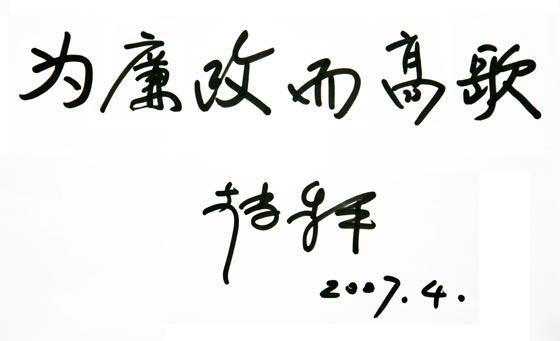 为廉政而高歌
2007.4.